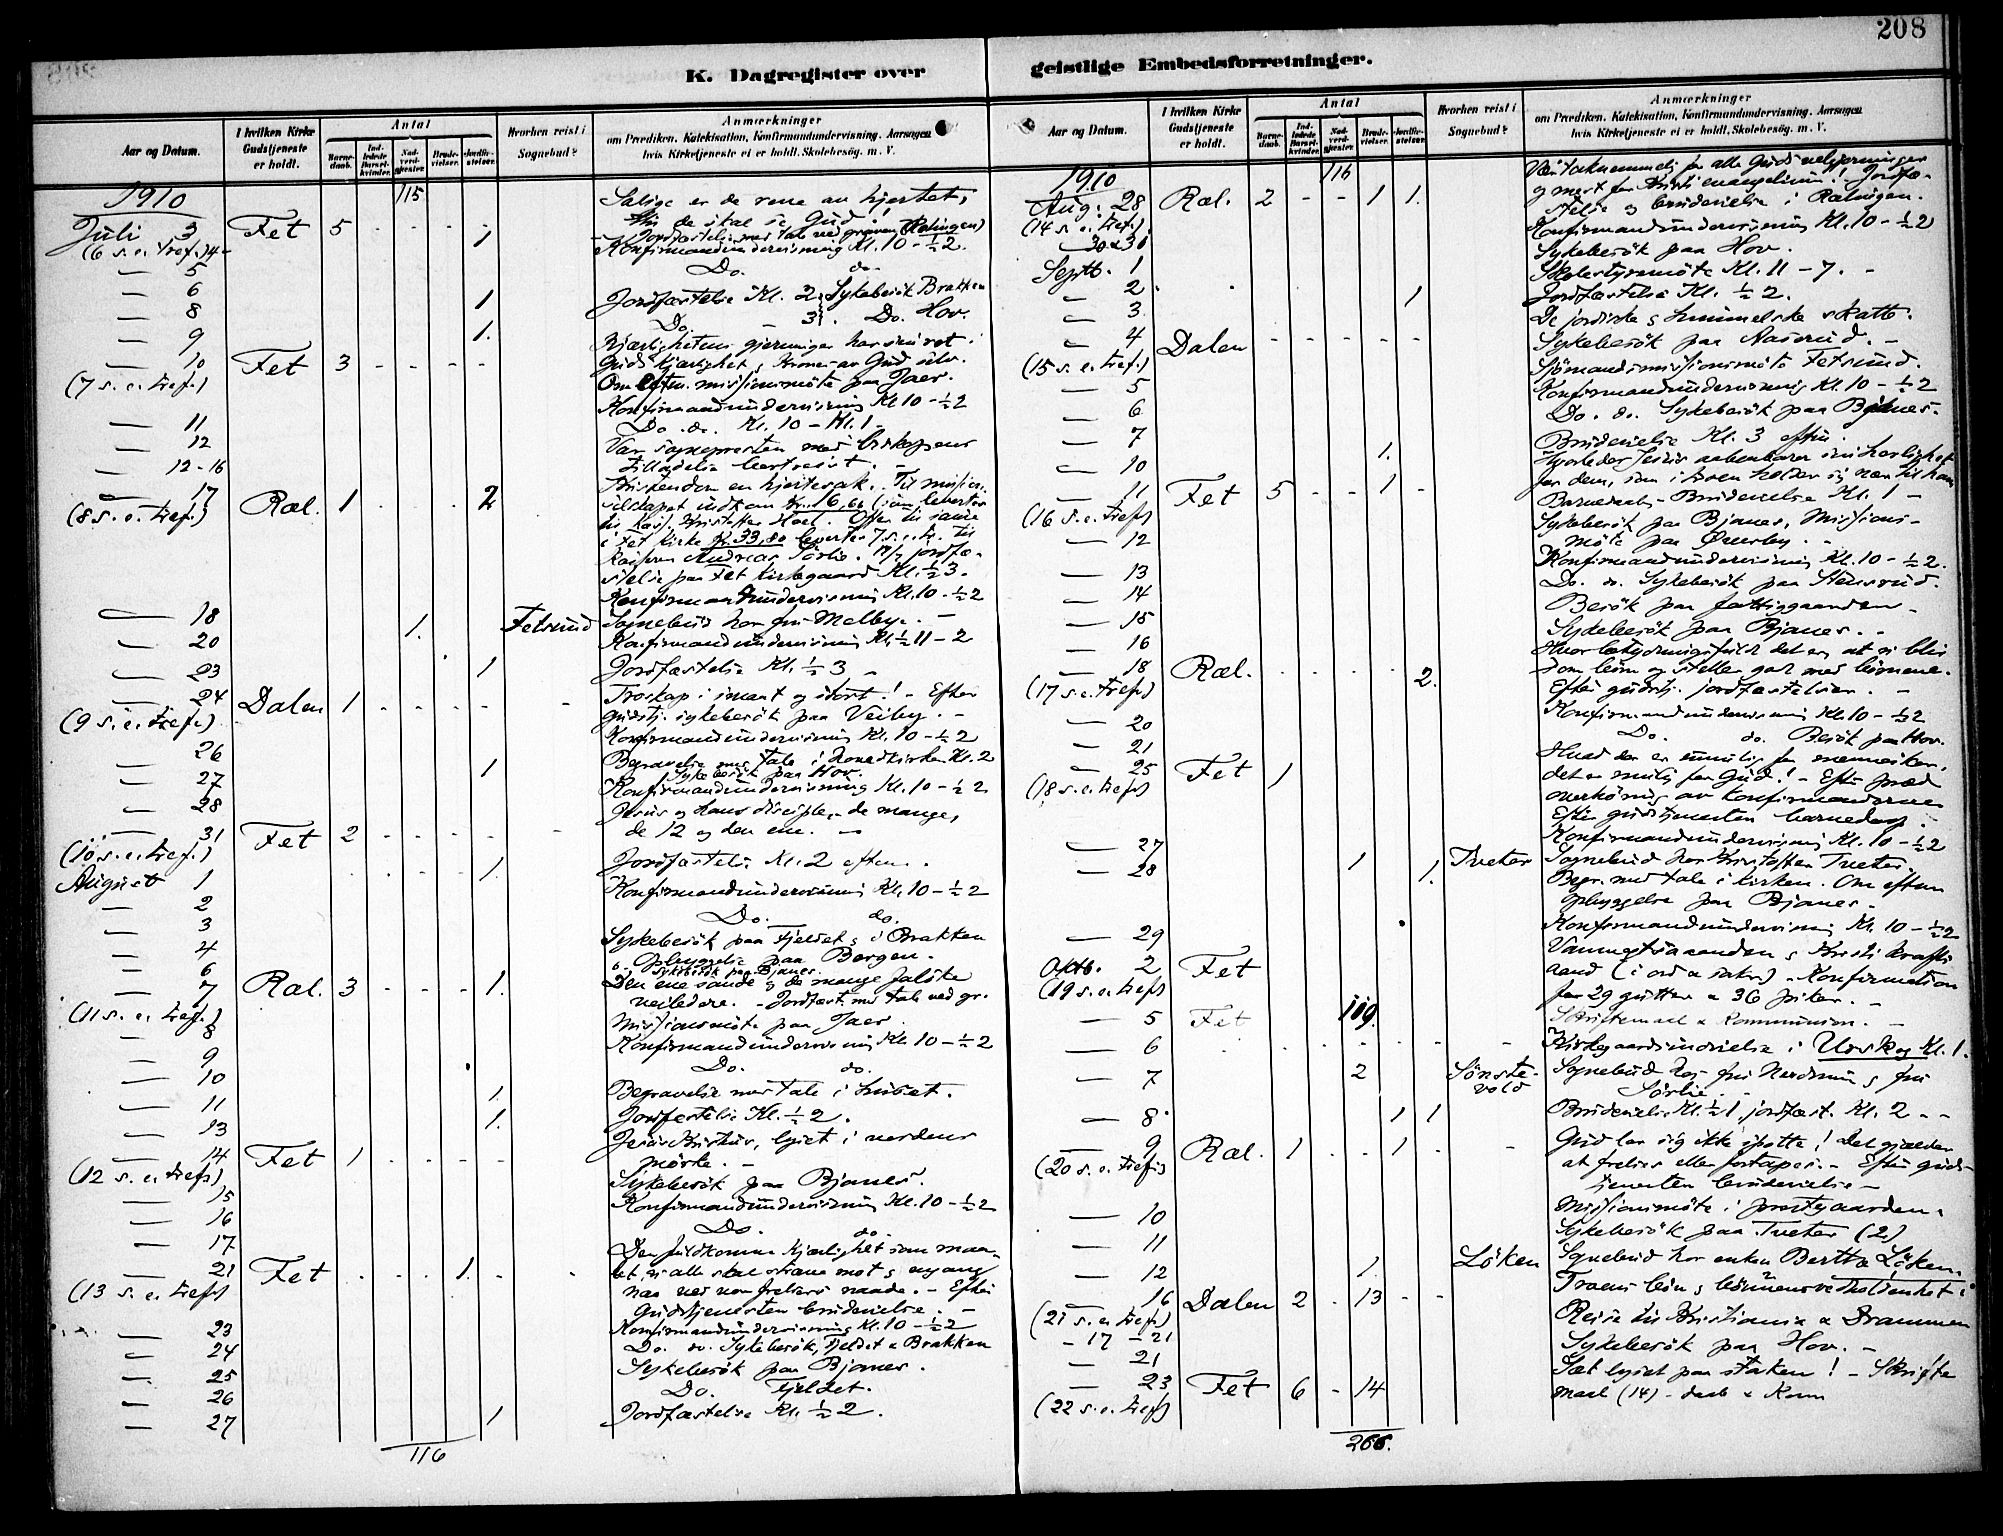 208
K. Dagregister over
geistlige Embedsforretninger.
Aar og Datum.
I hvilken Kirke Gudstjeneste er holdt.
Antal
Barnedaab.
Indledede Barselkvinder.
Nadverdgjester.
Brudevielser.
Jordfæstelser.
Hvorhen reist i Sognebud?
Anmærkninger
om Prædiken, Katekisation, Konfirmandundervisning, Aarsagen
hvis Kirketjeneste ei er holdt, Skolebesøg. m. V.
1910 115
Salige er de rene av hjertet,
Juli 3 Fet 5 - - - -
de skal se Gud!
(6 s. e. tref.) 4 1
Jordfæstelse med tale ved graven (Rælingen)
Konfirmandundervisning Kl. 10 - ½2.
5 Do. do.
6
8 1 Jordfæstelse Kl. 2; Sykebesök Brakken
9 1. Do. - 3. Do. Hov.
10 Fet 3 - - - -
(7 s. e. tref.)
Kjærlighetens gjerninger
Guds kjærlighet
Om eftm. missionsmöte paa Jaer.
11 Konfirmandundervisning Kl 10 - ½2
12 Do. do. Kl. 10 - Kl. 1 -
12-16 Var sognepresten med biskopens
tilladelse bortreist.
17 Ræl. 1 2
(8 s. e. tref.)
Kristendom en hjertesak. Til missions-
selskapet indkom Kr. 16,60 som leveres
til kass. Kristoffer Hoel. Offer til samme
i Fet kirke Kr. 33,80 leveres 7. s. e. tr. til
kasserer Andreas Sörlie. 17/7 jordfæ-
stelse paa Fet kirkegaard Kl. ½3.
18 Konfirmandundervisning Kl. 10 - ½2
20 1. Fetsund Sognebud hos fru Melbye. -
Konfirmandundervisning Kl. ½11 - 2
23 1 Jordfæstelse Kl. ½3 -
24 Dalen 1 - - - - -
(9 s. e. tref.)
Troskap i smaat og stort! - Efter
gudstj. sykebesök paa Veiby. -
26 Konfirmandundervisning Kl. 10 - ½2
27 1 Begravelse med tale i hovedkirken Kl. 2
Sykebesök paa Hov.
28 Konfirmandundervisning Kl. 10 - ½2
31 Fet 2 - - - -
(10 s. e. tref.)
Jesus og hans disciple, - de mange,
de 12 og den ene. -
August 1 1. Jordfæstelse Kl. 2 eftm.
2 Konfirmandundervisning Kl. 10 - ½2
3 Do. do.
4 Sykebesök paa Fjeldet & i Brakken
6 Opbyggelse paa Bergen.
Sykebesök paa Bjanes.
7 Ræl. 3 - - - 1.
(11 s. e. tref.)
Den ene sande og de mange falske
veiledere. - Jordfæst. m. tale ved gr.
8 Missionsmöte paa Jaer.
9 Konfirmandundervisning Kl. 10 - ½2
10 Do. do.
11 1. Begravelse med tale i huset.
13 1. Jordfæstelse Kl. ½2.
14 Fet 1 - - - - -
(12 s. e. tref.)
Jesus Kristus, lyset i verdens
mörke. -
15 Sykebesök paa Bjanes.
16 Konfirmandundervisning Kl. 10 - ½2
17 Do. do.
21 Fet - - - 1. -
(13 s. e. tref.)
Den fuldkomne kjærlighet som maa-
let, vi alle skal stræve mot &
naa ved vor frelsers naade. - Efter
Gudstjenesten brudevielse. -
23 Konfirmandundervisning Kl. 10 - ½2
24 Do. do. Sykebesök, Fjeldet & Brakken
25 Sykebesök paa Bjanes.
26 Do. Fjeldet.
27 1 Jordfæstelse Kl. ½2.
116
Aar og Datum.
I hvilken Kirke Gudstjeneste er holdt.
Antal
Barnedaab.
Indledede Barselkvinder.
Nadverdgjester.
Brudevielser.
Jordfæstelser.
Hvorhen reist i Sognebud?
Anmærkninger
om Prædiken, Katekisation, Konfirmandundervisning, Aarsagen
hvis Kirketjeneste ei er holdt, Skolebesøg. m. V.
1910 116
Vær taknemmelig for alle Guds velgjerninger
Aug. 28 Ræl. 2 - - 1 1.
(14 s. e. tref.)
og mest for Kristi evangelium! Jordfæ-
stelse og brudevielse i Rælingen.
30 & 31 Konfirmandundervisning Kl. 10 - ½2
Septb. 1 Sykebesök paa Hov.
2 Skolestyremöte Kl. 11 - 7. -
3. 1 Jordfæstelse Kl. ½2.
4 Dalen - - - - -
(15 s. e. tref.)
De jordiske & himmelske skatte.
Sykebesök paa Aaserud. -
5 Sjömandsmissionsmöte Fetsund.
6 Konfirmandundervisning Kl. 10 - ½2
7 Do. do. Sykebesök paa Bjanes.
10 1. Brudevielse Kl. 3 eftm.
11 Fet 5 - - 1 -
(16 s. e. tref.)
Hvorledes Jesus aabenbarer sin herlighet
for dem, som i troen holder sig nær til ham
Barnedaab - Brudevielse Kl. 1 -
12 Sykebesök paa Bjanes, Missions-
möte paa Överby. -
13 Konfirmandundervisning Kl. 10 - ½2.
14 Do. do. Sykebesök paa Stensrud.
15 Besök paa fattiggaarden -
16 Sykebesök paa Bjanes. -
18 Ræl. - - - - 2.
(17 s. e. tref.)
Hvor betydningsfuldt det er, at vi blir
som börn og steller godt med börnene.
Efter gudstj. jordfæstelser. -
20 Konfirmandundervisning Kl. 10 - ½2
21 Do. do. Besök paa Hov.
25 Fet 1
(18 s. e. tref.)
Hvad der er umulig for mennesker,
det er mulig for Gud! - Efter præd
overhöring av konfirmanderne
Efter gudstjenesten barnedaap.
27 Konfirmandundervisning Kl. 10 - ½2
28 1 1. Tveter Sognebud hos Kristoffer Tveter.
Begr. med tale i kirken. Om eftm
opbyggelse paa Bjanes.
29 Konfirmandundervisning Kl. 10 - ½2
Oktb. 2 Fet
(19 s. e. tref.)
& Kristi krafts
aand (i ord & saker) - Konfirmation
for 29 gutter & 36 piker. -
5 Fet 119. Skriftemaal & Kommunion. -
6 - - - - - - Kirkegaardsindvielse i Urskog Kl. 1.
7 2 Sönstevold Sognebud hos fru Nordmin & fru
Sörlie. -
8. 1 1 Brudevielse Kl. ½1, jordfæst. Kl. 2 - -
9 Ræl. 1 - - 1 - -
(20 s. e. tref.)
Gud lar sig ikke spotte! Det gjælder
at frelses eller fortapes. - Efter guds-
tjenesten brudevielse -
10 Missionsmöte i prestegaarden.
11 Sykebesök paa Tveter (2)
12 1. Löken Sognebud hos enken Berthe Löken.
16 Dalen 2 - 13 - -
(21 s. e. tref.)
Troens bön & bönnens vedholdenhet
- 17 - 21 Reise til Kristiania & Drammen
21 Sykebesök paa Hov. -
23 Fet 6 - 14
(22 s. e. tref.)
Sæt lyset paa staken! - Skrifte
maal (14) - daab & Kom
266.